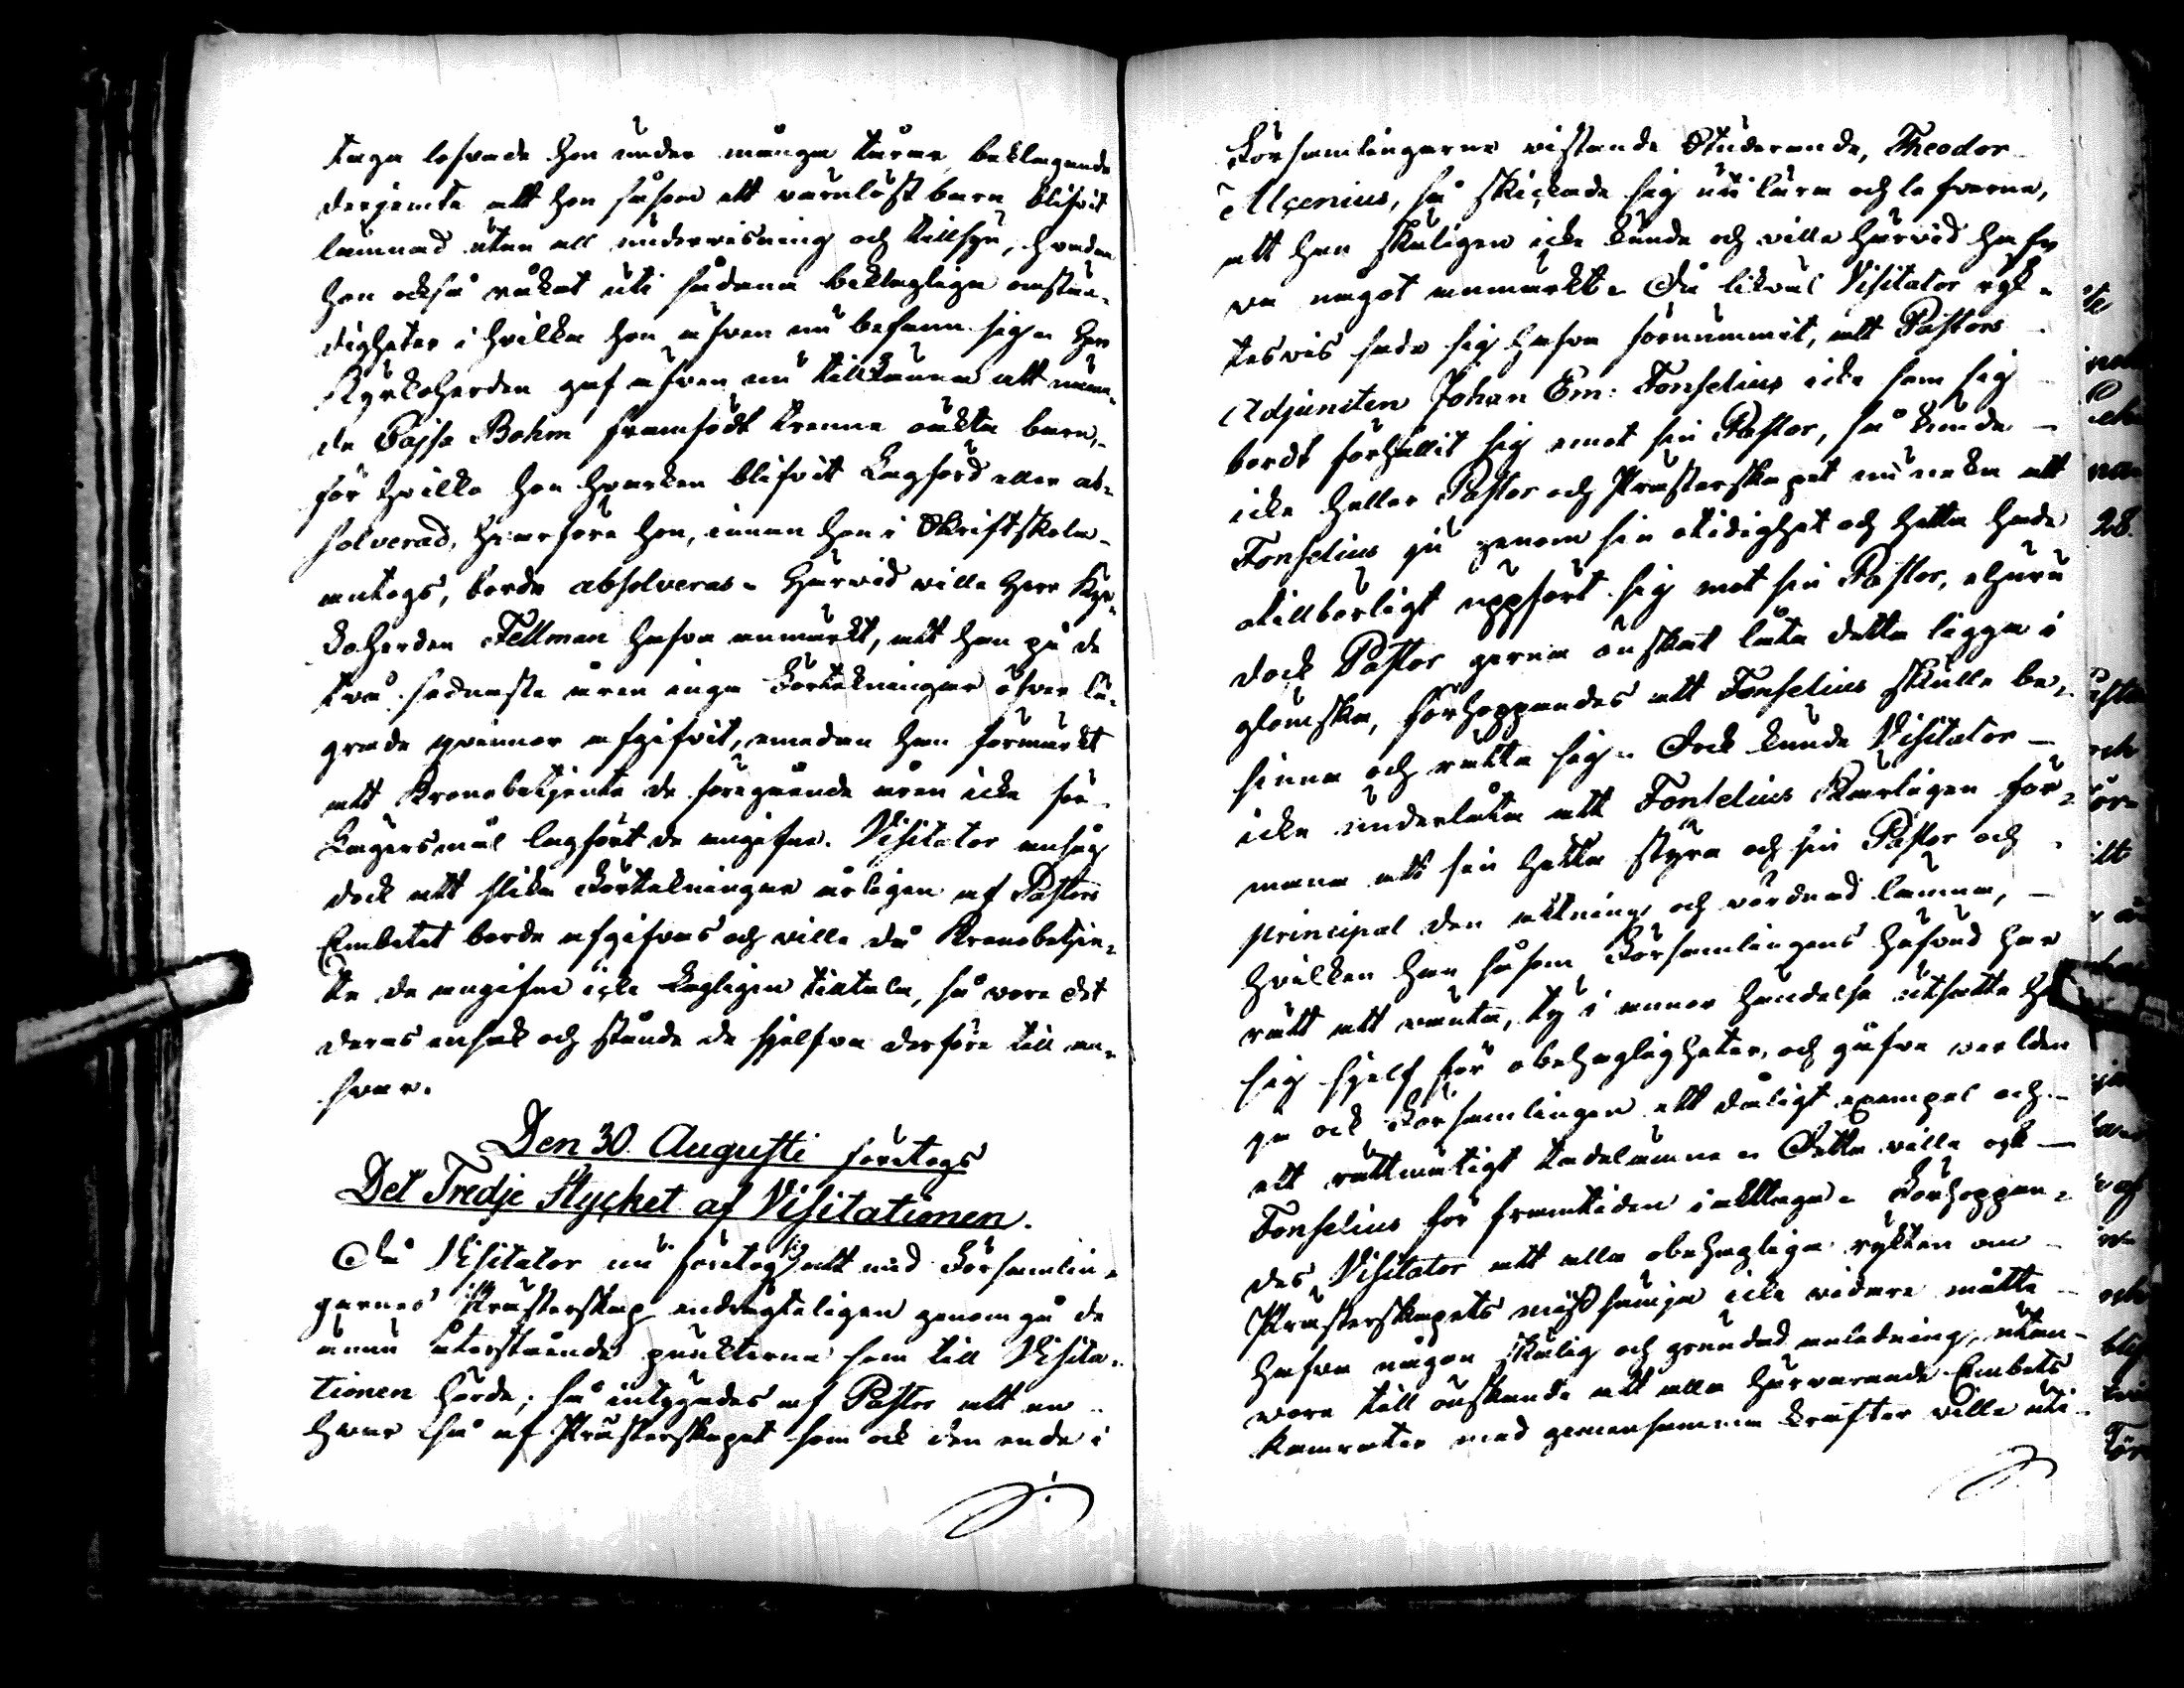 taga lofvade hon under många tårar, beklagande
derjemte att hon såsom ett värnlöst barn blifvit
lämnad utan all undervisning och tillsyn, hvadan
hon också råkat uti sådana beklagliga omstän-
digheter i hvilka hon äfven nu befann sig. Herr
Kyrkoherden gaf äfven nu tillkänna att näm-
da Cajsa Bohm framfödt trenne oäkta barn,
för hvilka hon hvarken blifvit Lagförd eller ab-
solverad, hvarföre hon, innan hon i Skriftskola
antogs, borde absolveras. Härvid ville Herr Kyr-
koherden Fellman hafva anmärkt, att han på de
två sednaste åren inga Förtekningar öfver lä-
grade qvinnor afgifvit, emedan han förmärkt
att Kronobetjente de föregående åren icke för
Lägersmål lagfört de angifne. Visitator ansåg
dock att slika Förtekningar årligen af Pastors
Embetet borde afgifvas och ville då Kronobetjen-
te de angifne icke Lagligen tilltala, så vore det
deras ensak och stånde de sjelfva derföre till an-
svar.
Den 30. Augusti företogs
Det Tredje Stycket af Visitationen.
Då Visitator nu företog att med Församlin-
garnes Prästerskap endrägteligen genomgå de
ännu återstående punkterna som till Visita-
tionen hörde; så intygades af Pastor att en
hvar så af Prästerskapet som ock den ende i
Församlingarne vistande Studerande, Theodor
Alcenius, så skickade sig uti lära och lefverne,
att han skäligen icke kunde och ville härvid haf-
va något anmärkt. Då likväl Visitator ryk-
tesvis sade sig hafva förnummit, att Pastors
Adjuncten Johan Em: Fonselius icke som sig
bordt förhållit sig emot sin Pastor, så kunde
icke heller Pastor och Prästerskapet nu neka att
Fonselius ju genom sin otidighet och hetta hade
otillbörligt uppfört sig mot sin Pastor, ehuru
dock Pastor gerna önskat låta detta ligga i
glömska, förhoppandes att Fonselius skulle be-
sinna och rätta sig. Dock kunde Visitator
icke underlåta att Fonselius kärligen för-
mana att sin hetta styra och sin Pastor och
principal den aktning och vördnad lämna,
hvilken han såsom Församlingens hufvud har
rätt att vänta, ty i annor händelse utsatte han
sig sjelf för obehagligheter, och gåfve verlden
ja ock Församlingen ett dåligt exempel och
ett rättmätigt tadelämne. Detta ville ock
Fonselius för framtiden iakttaga. Förhoppan-
des Visitator att alla obehagliga rykten om
Prästerskapets missämja icke vidare måtte
hafva någon skälig och grundad anledning, utan
vore till önskande att alla härvarande Embets
kamrater med gemensamma krafter ville uti